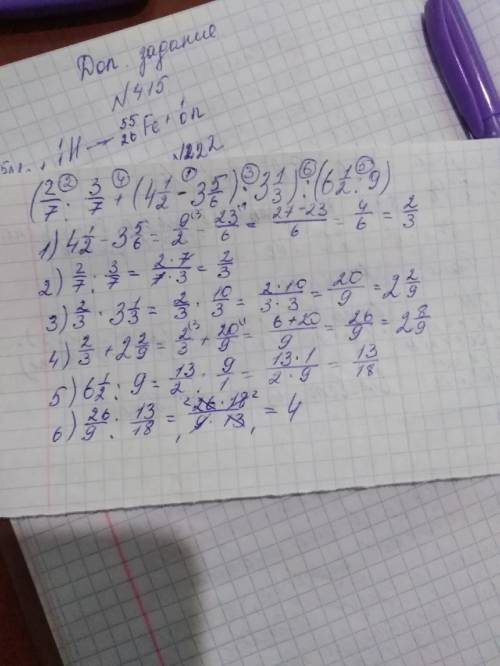 Доп. задание
№415
¹₁H → ⁵⁵₂₆Fe + ¹₀n
№222
(2/7 : 3/7 + (4 1/2 - 3 5/6) · 3 1/3) : (6 1/2 : 9)
1) 4 1/2 - 3 5/6 = 9/2 - 23/6 = 27-23/6 = 4/6 = 2/3
2) 2/7 : 3/7 = 2·7/7·3 = 2/3
3) 2/3 · 3 1/3 = 2/3 · 10/3 = 2·10/3·3 = 20/9 = 2 2/9
4) 2/3 + 2 2/9 = 2/3 + 20/9 = 6+20/9 = 26/9 = 2 8/9
5) 6 1/2 : 9 = 13/2 : 9/1 = 13·1/2·9 = 13/18
6) 26/9 : 13/18 = 26·18/9·13 = 4